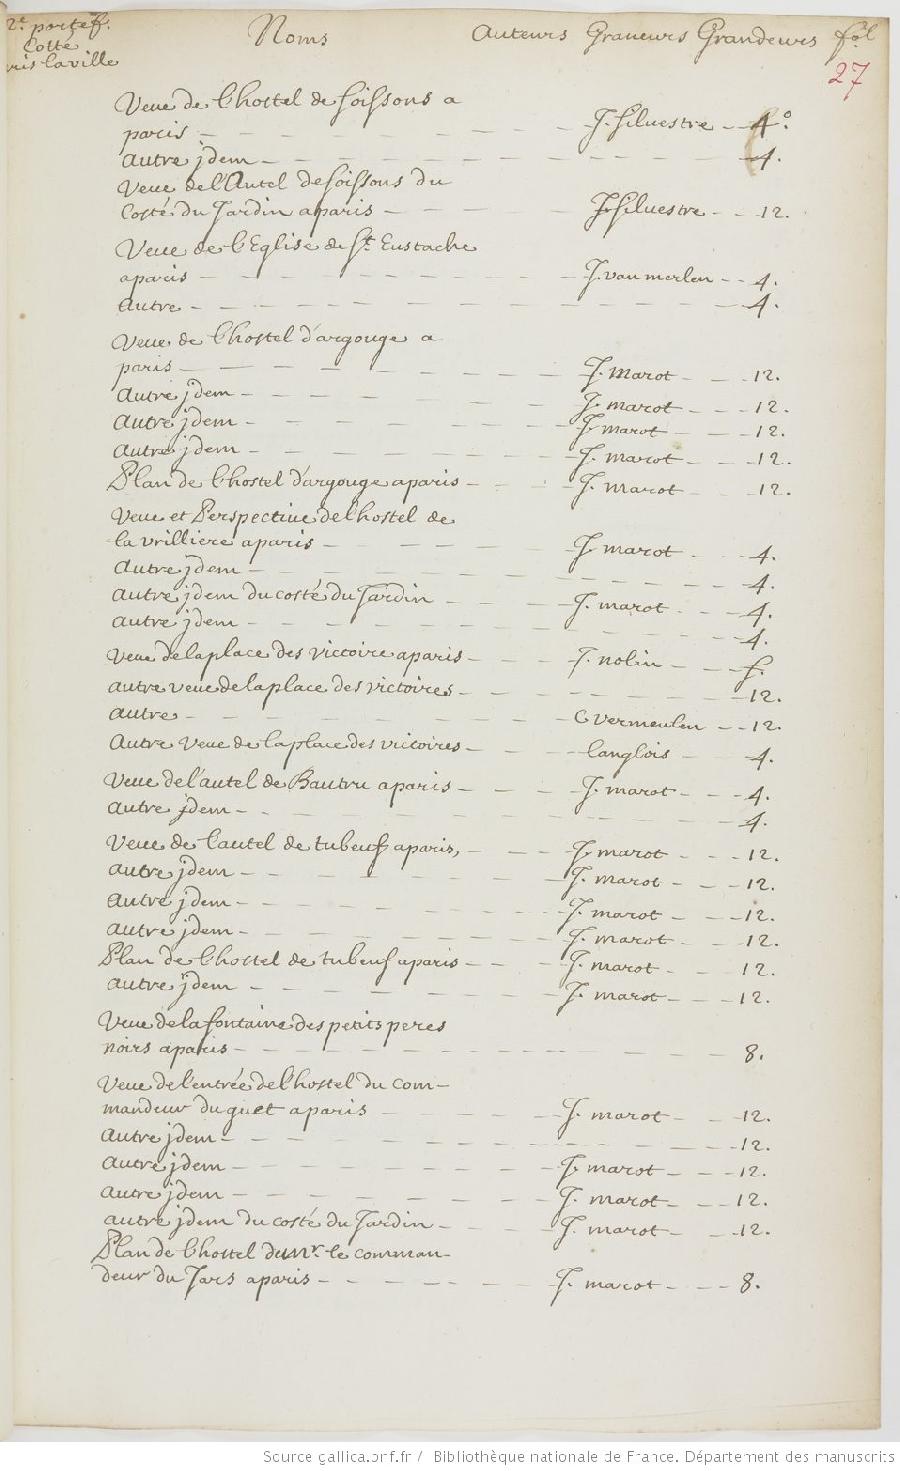 2e portef. Noms Auteurs Graueurs Grandeurs fol
Cotté
ris la ville 27
Veue de l'hostel de soissons a
paris J. siluestre 4°.
autre jdem 4.
Veue de l'Autel de soissons du
costé du Jardin a paris J. siluestre 12.
Veue de l'Eglise de St. Eustache
a paris J. van merlen 4.
autre 4.
Veue de l'hostel d'argouge a
paris J. Marot 12.
autre jdem J. marot 12.
autre jdem J. marot 12.
autre jdem J. marot 12.
Plan de l'hostel d'argouge a paris J. marot 12.
Veue et Perspectiue de l'hostel de
la vrilliere a paris J. marot 4.
autre jdem 4.
autre jdem du costé du Jardin J. marot 4.
autre jdem 4.
Veue de la place des victoire a paris J. nolin f.
autre veue de la place des victoires 12.
autre C. vermeulen 12.
Autre Veue de la place des victoires langlois 4.
Veue de l'autel de Bautru a paris J. marot 4.
autre jdem 4.
Veue de l'autel de tubeuf a paris, J. marot 12.
autre jdem J. marot 12.
autre jdem J. marot 12.
autre jdem J. marot 12.
Plan de l'hostel de tubeuf a paris J. marot 12.
autre jdem J. marot 12.
Veue de la fontaine des petits peres
noirs a paris 8.
Veue de l'entrée de l'hostel du com-
mandeur du guet a paris J. marot 12.
autre jdem 12.
autre jdem J. marot 12.
autre jdem J. marot 12.
autre jdem du costé du Jardin J. marot 12.
Plan de l'hostel du Mr. le comman-
deur du Jars a paris J. marot 8.
Source gallica.bnf.fr / Bibliothèque nationale de France. Département des manuscrits